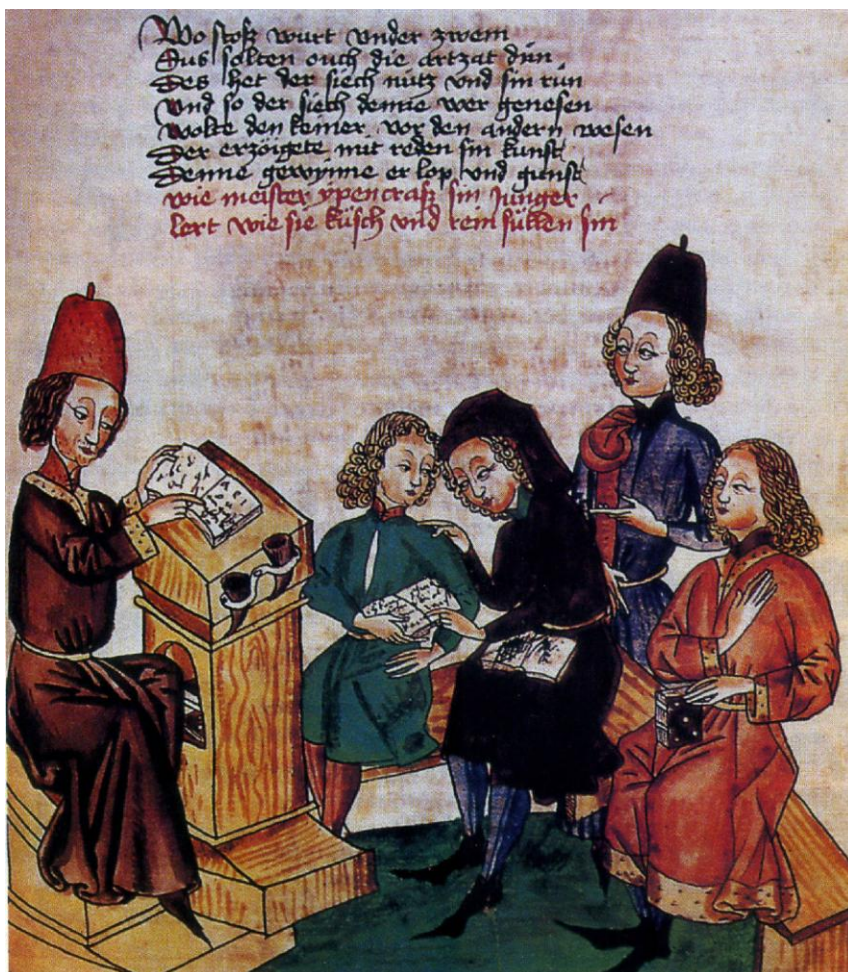 Wo stosz wurt vnder zwem
Dus solten ouch die artzat dün
Des het der siech nutz vnd sin rün
Vnd so der siech denne wer genesen
wolte den keiner vor den andern wesen
Der erzöigete mit reden sin kunst
Denne gewynne er lop vnd gunst
wie meister ypencrasz sin Junger
lert wie sie küsch vnd rein süllen sin